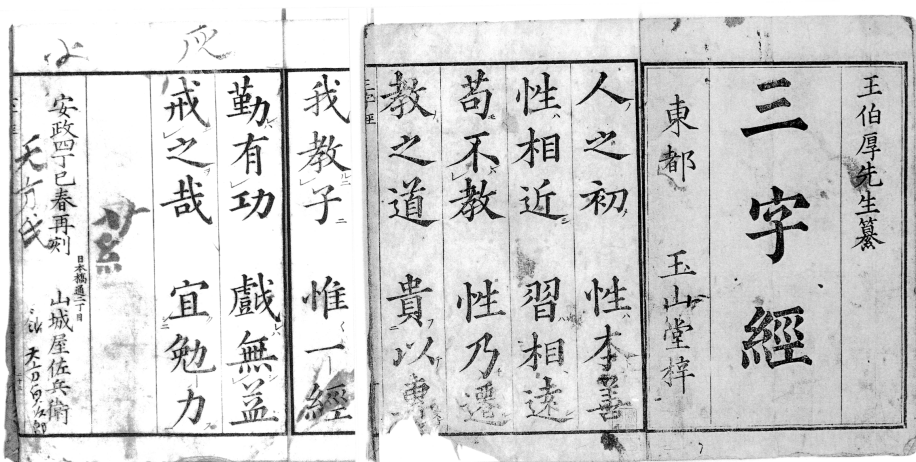 王伯厚先生纂
三字經
東都 玉山堂梓
人之初 性本善
性相近 習相遠
苟不教 性乃遷
教之道 貴以專
三字經
我教子 惟一經
勤有功 戲無益
戒之哉 宜勉力
安政四丁巳春再刻 日本橋通二丁目 山城屋佐兵衛